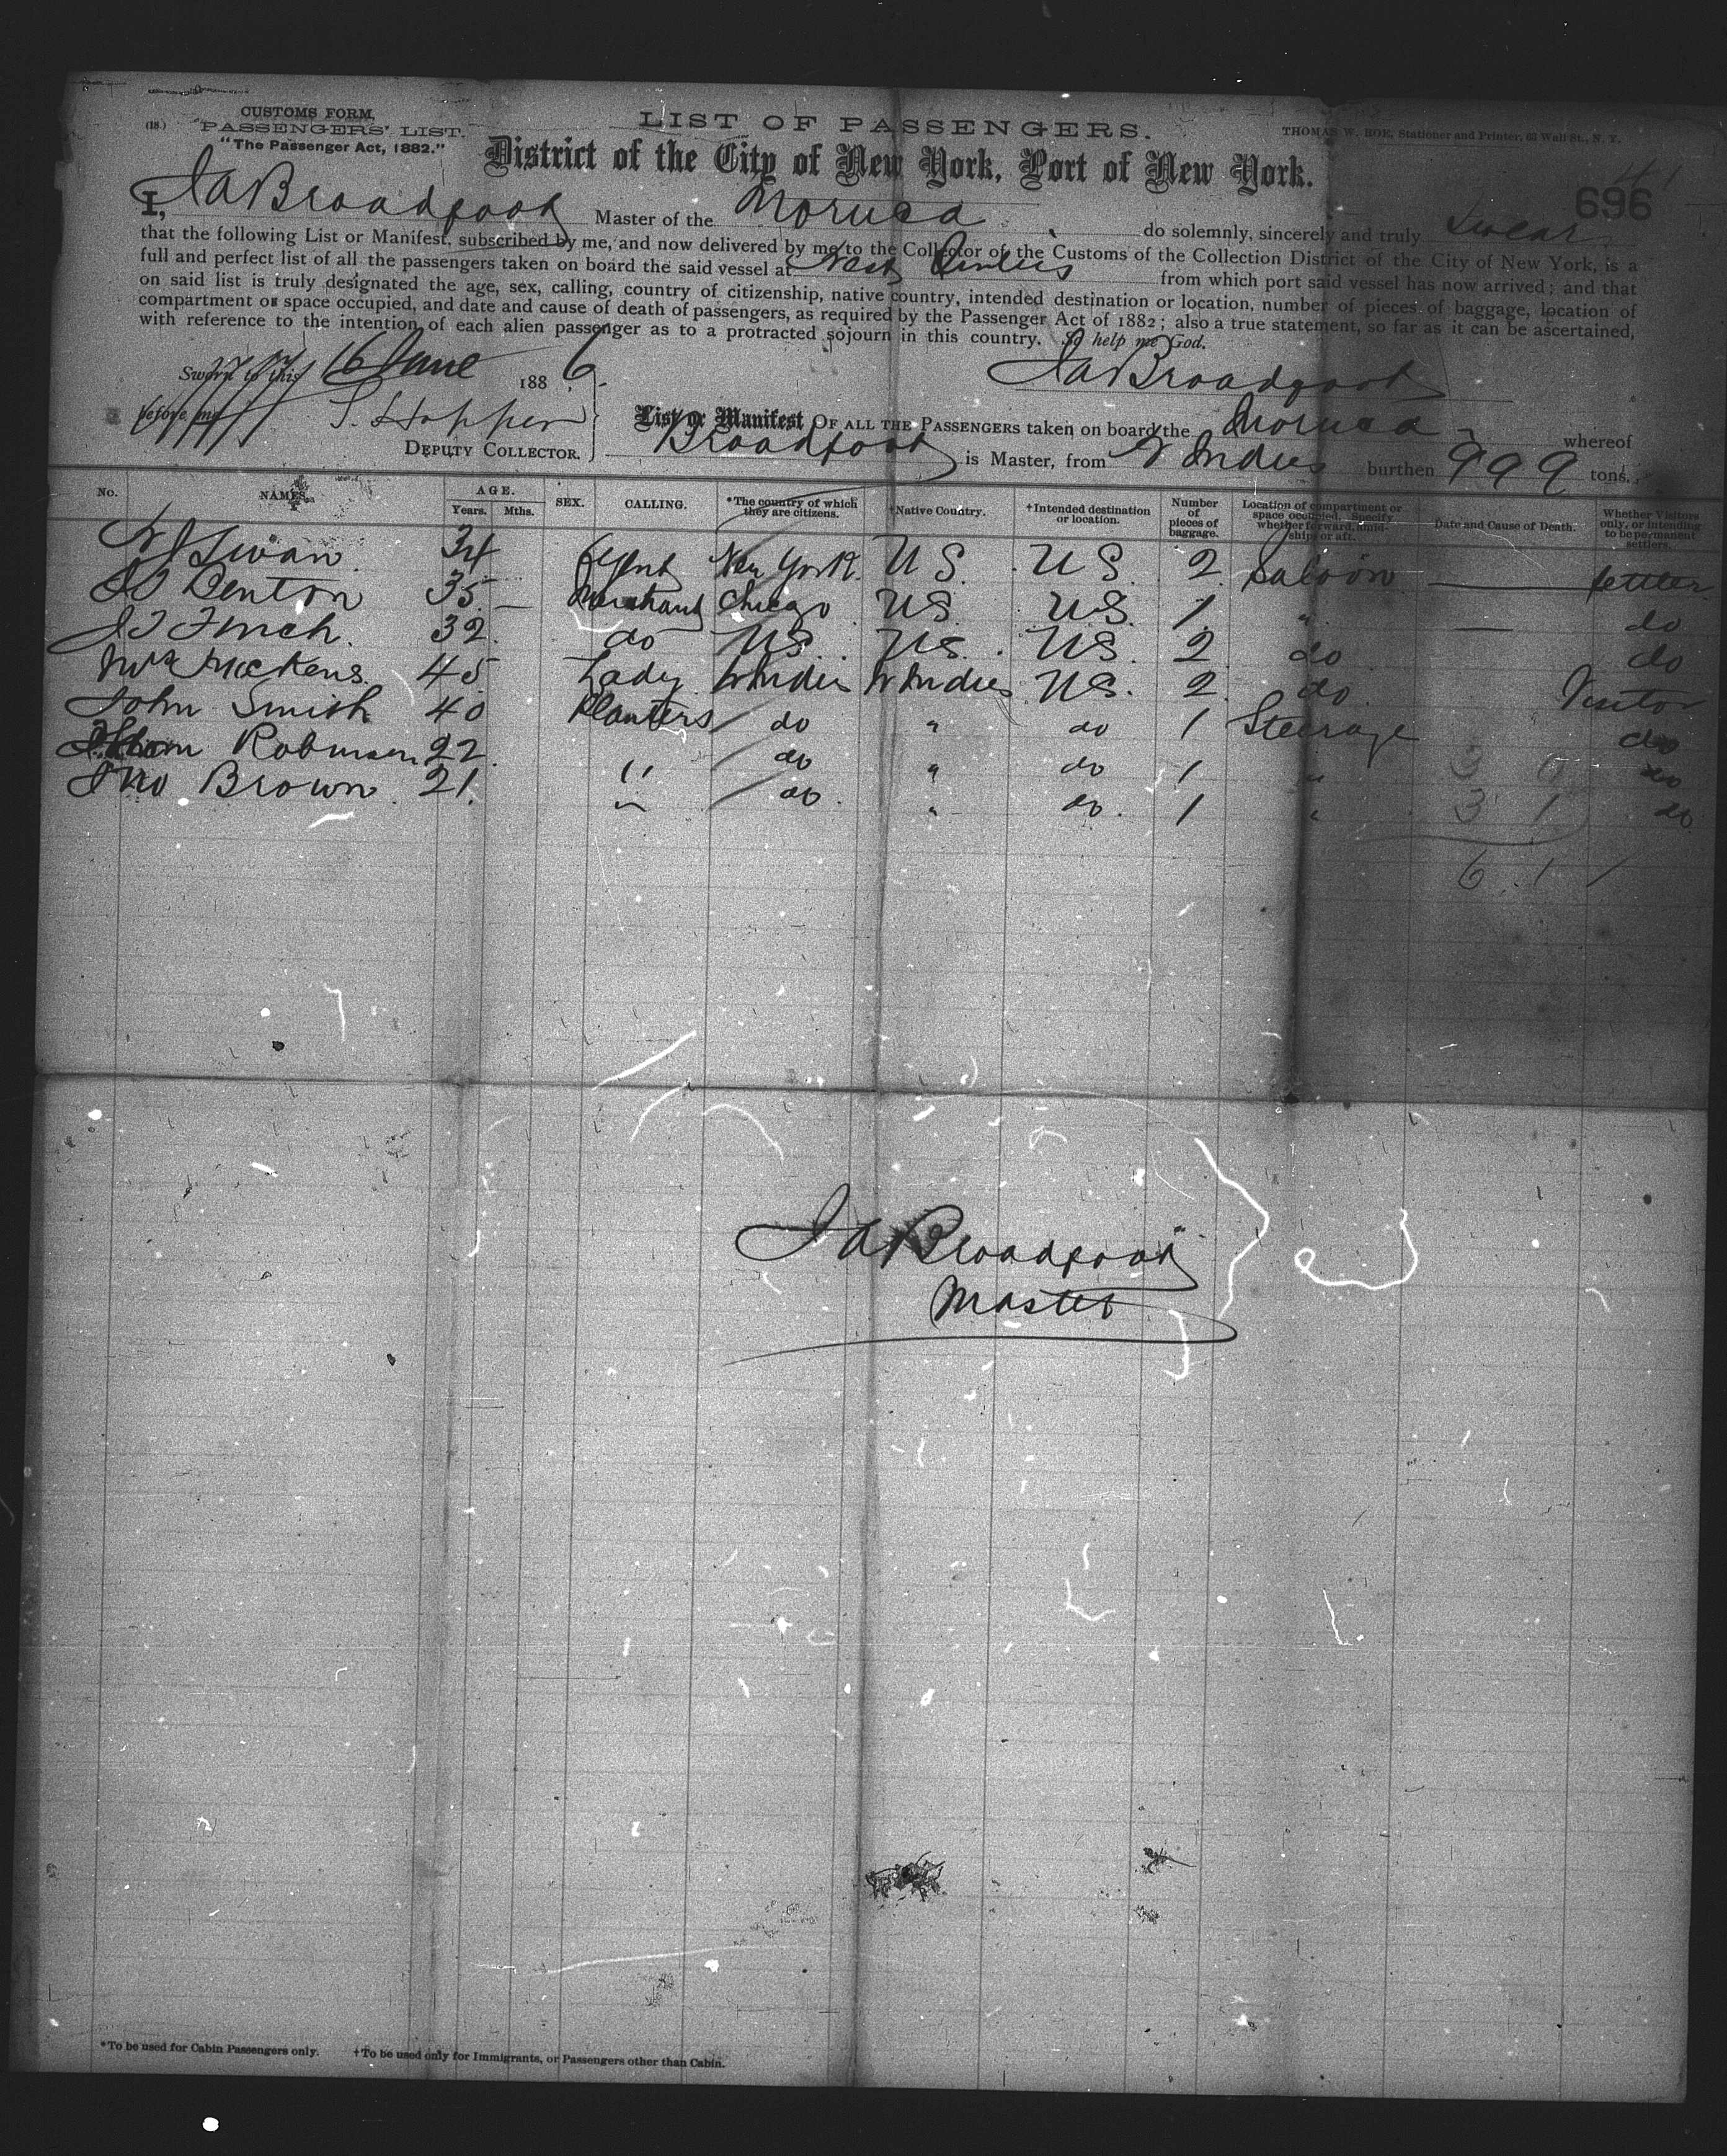 CUSTOMS FORM,
(18.) "PASSENGERS' LIST.
"The Passenger Act, 1882."
LIST OF PASSENGERS.
THOMAS W. ROE, Stationer and Printer, 63 Wall St., N. Y.
District of the City of New York, Port of New York.
41
696
I, J A Broadfoot Master of the Moruca do solemnly, sincerely and truly Swear
that the following List or Manifest, subscribed by me, and now delivered by me to the Collector of the Customs of the Collection District of the City of New York, is a
full and perfect list of all the passengers taken on board the said vessel at West Indies from which port said vessel has now arrived; and that
on said list is truly designated the age, sex, calling, country of citizenship, native country, intended destination or location, number of pieces of baggage, location of
compartment or space occupied, and date and cause of death of passengers, as required by the Passenger Act of 1882; also a true statement, so far as it can be ascertained,
with reference to the intention of each alien passenger as to a protracted sojourn in this country. So help me God.
Sworn to this 16 June 1886
J A Broadfoot
before me S. Hopper
DEPUTY COLLECTOR.
List or Manifest OF ALL THE PASSENGERS taken on board the Moruca whereof
Broadfoot is Master, from W Indies burthen 999 tons.
No. NAMES. AGE. Years. Mths. SEX. CALLING. *The country of which they are citizens. †Native Country. †Intended destination or location. Number of pieces of baggage. Location of compartment or space occupied. Specify whether forward, amidships, or aft. Date and Cause of Death. Whether Visitors only, or intending to be permanent settlers.
Swan 34 Agent New York U S. U S. 2 Saloon — Settler
Benton 35 — Merchant Chicago US US. 1 " — do
J T Finch 32 do US. US. US. 2 do do
45 Lady W Indies W Indies US. 2 do Visitor
John Smith 40 Planters do " do 1 Steerage do
Robinson 22 " do " do 1 " 3 0 do
Jno Brown 21 " do " do 1 " 3 1 do
6 1
J A Broadfoot
Master
*To be used for Cabin Passengers only. †To be used only for Immigrants, or Passengers other than Cabin.